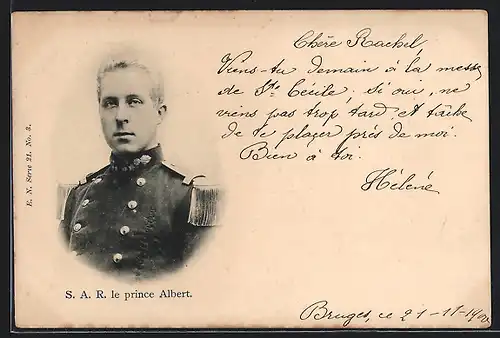 Chère Rachel,
Viens-tu demain à la messe
de Ste Cécile; si oui, ne
viens pas trop tard, et tâche
de te placer près de moi.
Bien à toi.
Hélène
E. N. Série 21. No. 3.
S. A. R. le prince Albert.
Bruges, ce 21-11-1900